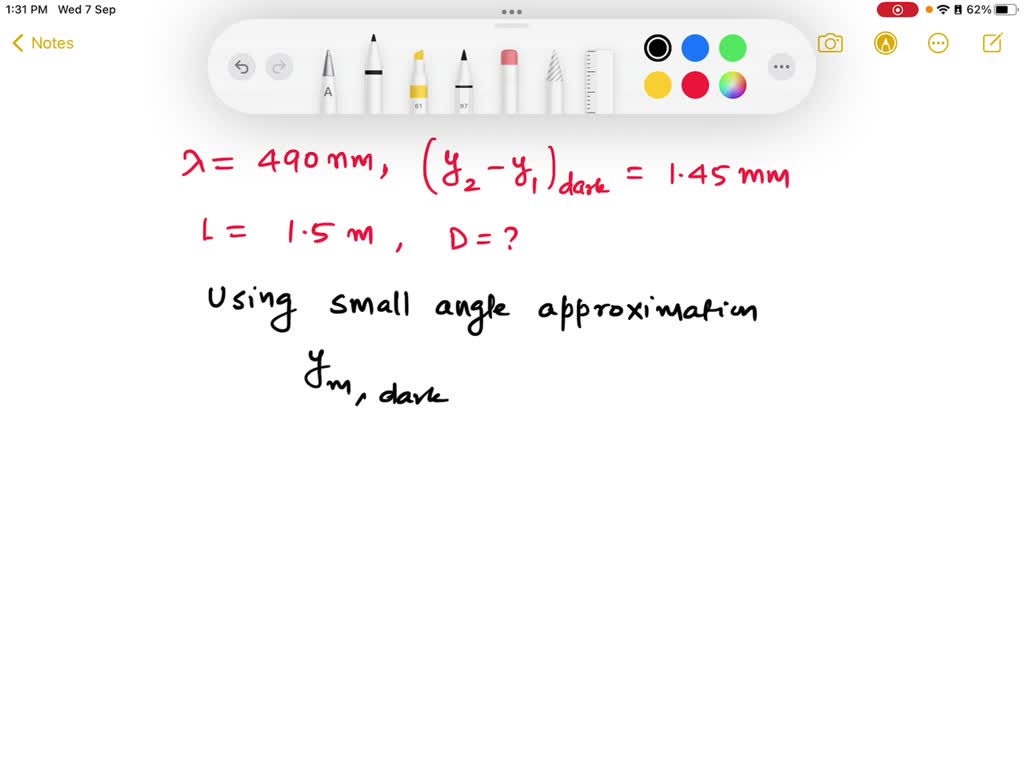 1:31 PM Wed 7 Sep 62%
Notes
A 61 97
λ = 490 nm, (y₂ - y₁)dark = 1.45 mm
L = 1.5 m, D = ?
Using small angle approximation
yₘ, dark